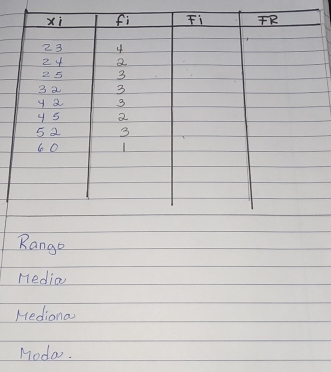 xi fi Fi FR
23 4
24 2
25 3
32 3
42 3
45 2
52 3
60 1
Rango
Media
Mediana
Moda.